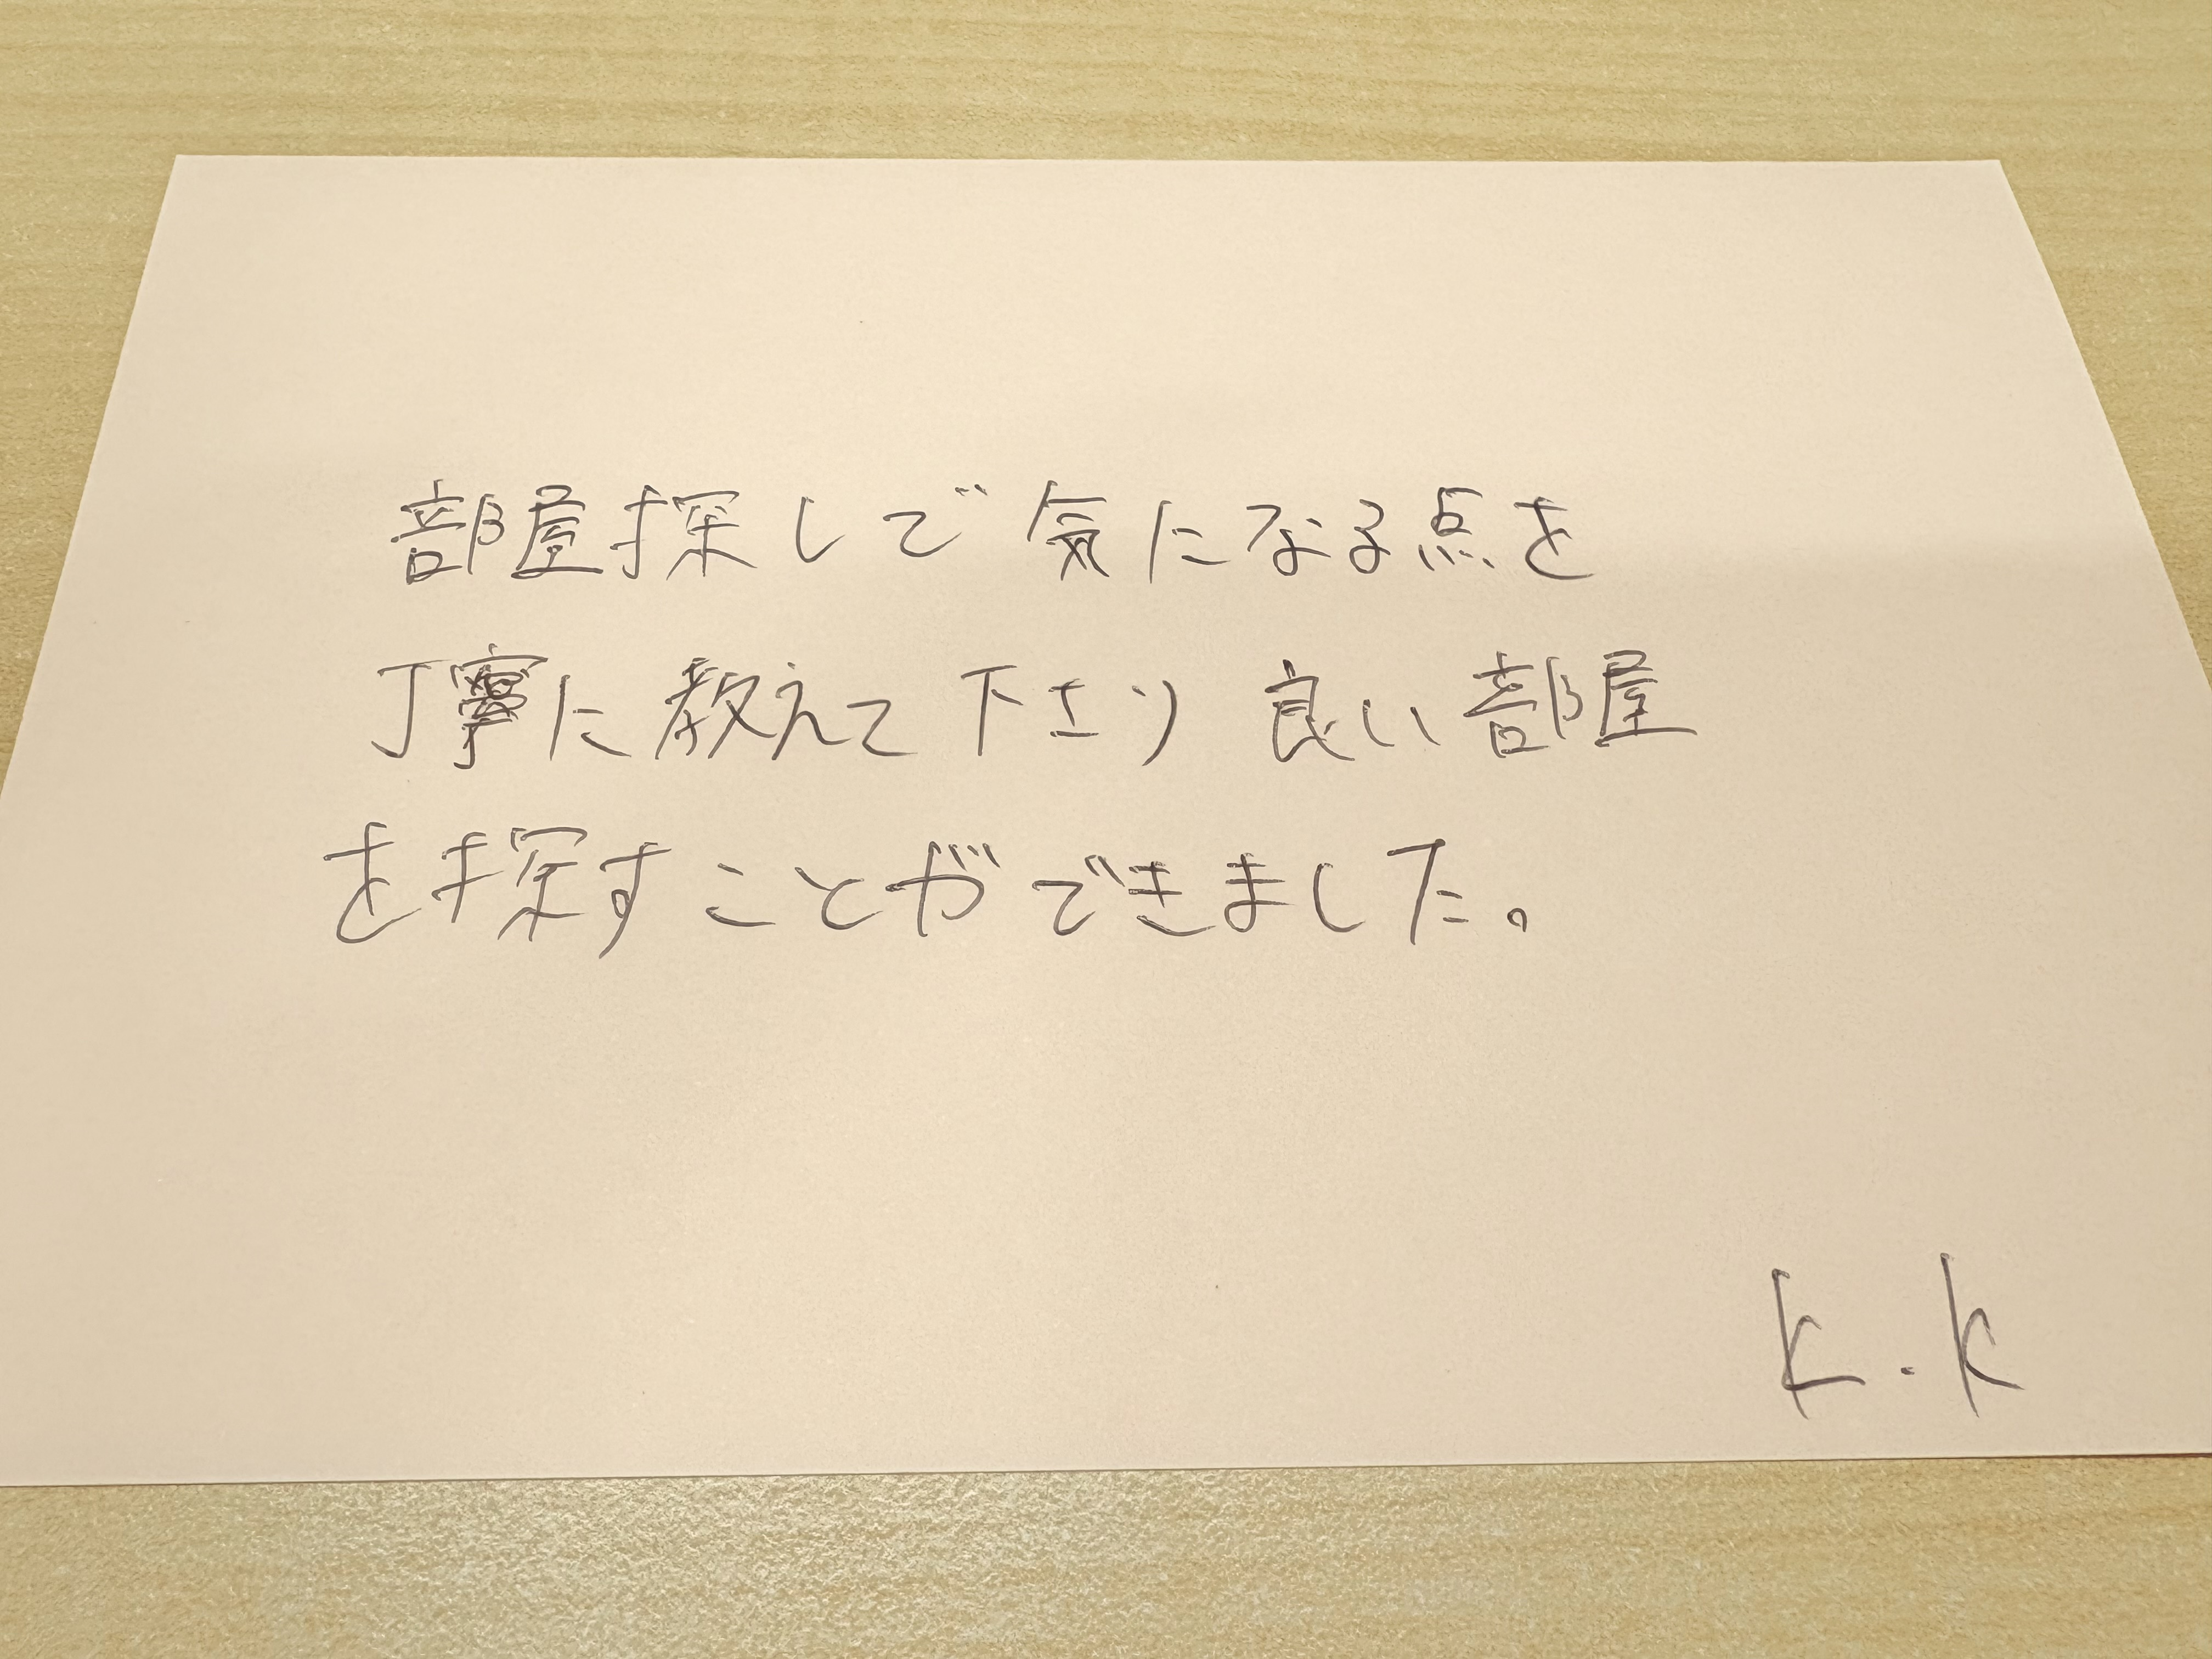 部屋探しで気になる点を
丁寧に教えて下さり 良い部屋
を探すことができました。
K.K